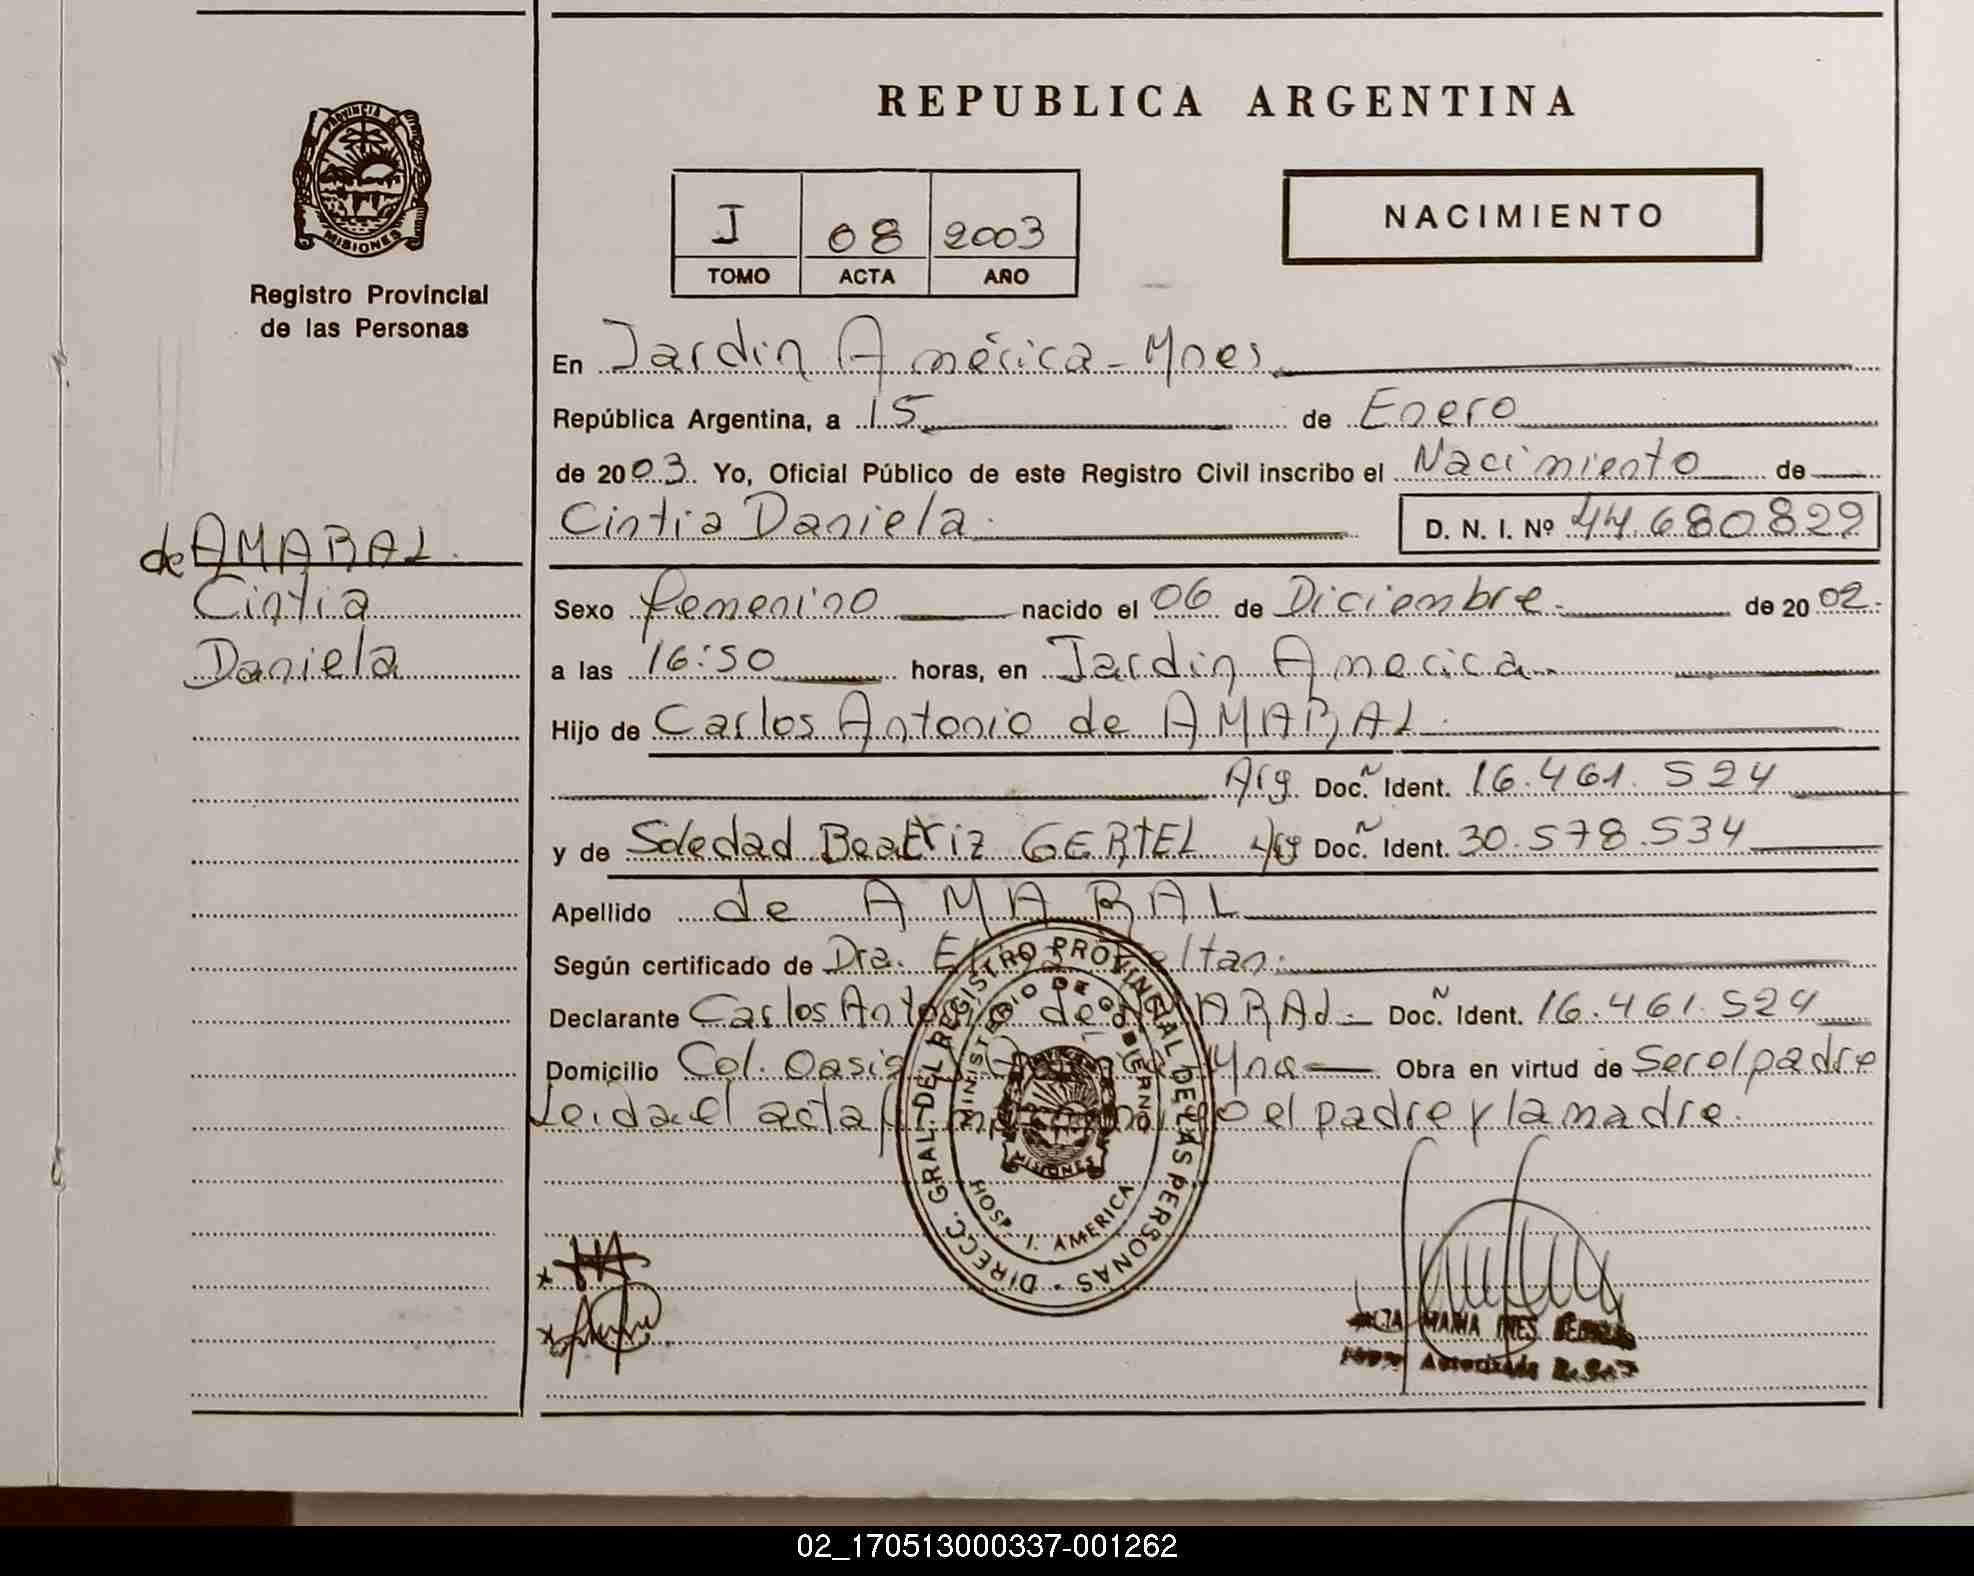 REPUBLICA ARGENTINA
PROVINCIA DE
MISIONES
Registro Provincial
de las Personas
I 08 2003
TOMO ACTA AÑO
NACIMIENTO
En Jardin América - Mnes
República Argentina, a 15 de Enero
de 2003. Yo, Oficial Público de este Registro Civil inscribo el Nacimiento de
Cintia Daniela. D. N. I. Nº 44.680.822
de AMARAL.
Cintia
Daniela
Sexo femenino nacido el 06 de Diciembre. de 20 02.
a las 16:50 horas, en Jardin America.
Hijo de Carlos Antonio de AMARAL.
Arg. Doc. Ident. 16.461.524
y de Soledad Beatriz GERTEL Arg Doc. Ident. 30.578.534
Apellido de AMARAL
Según certificado de Dra.
Declarante Carlos Antonio de AMARAL. Doc. Ident. 16.461.524
Domicilio Col. Oasis Mnes Obra en virtud de Ser el padre
Leida el acta el padre y la madre.
DIRECC. GRAL. DEL REGISTRO PROVINCIAL DE LAS PERSONAS
MINISTERIO DE GOBIERNO
MISIONES
HOSP. J. AMERICA
MARIA INES
Autorizada
02_170513000337-001262